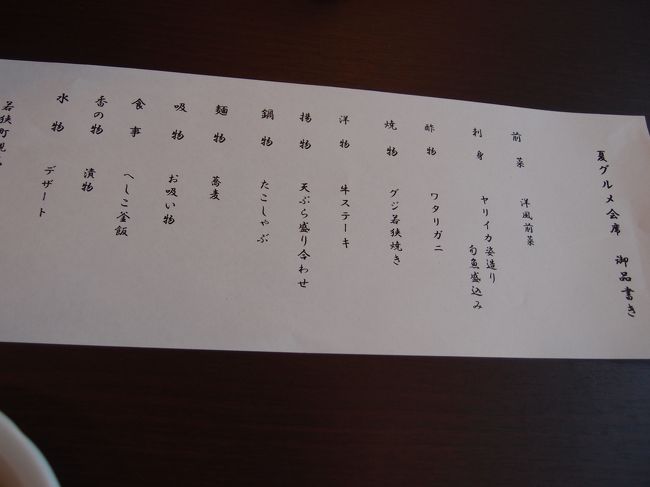 夏グルメ会席　御品書き
前菜　洋風前菜
刺身　ヤリイカ姿造り
旬魚盛込み
酢物　ワタリガニ
焼物　グジ若狭焼き
洋物　牛ステーキ
揚物　天ぷら盛り合わせ
鍋物　たこしゃぶ
麺物　蕎麦
吸物　お吸い物
食事　へしこ釜飯
香の物　漬物
水物　デザート
若狭町